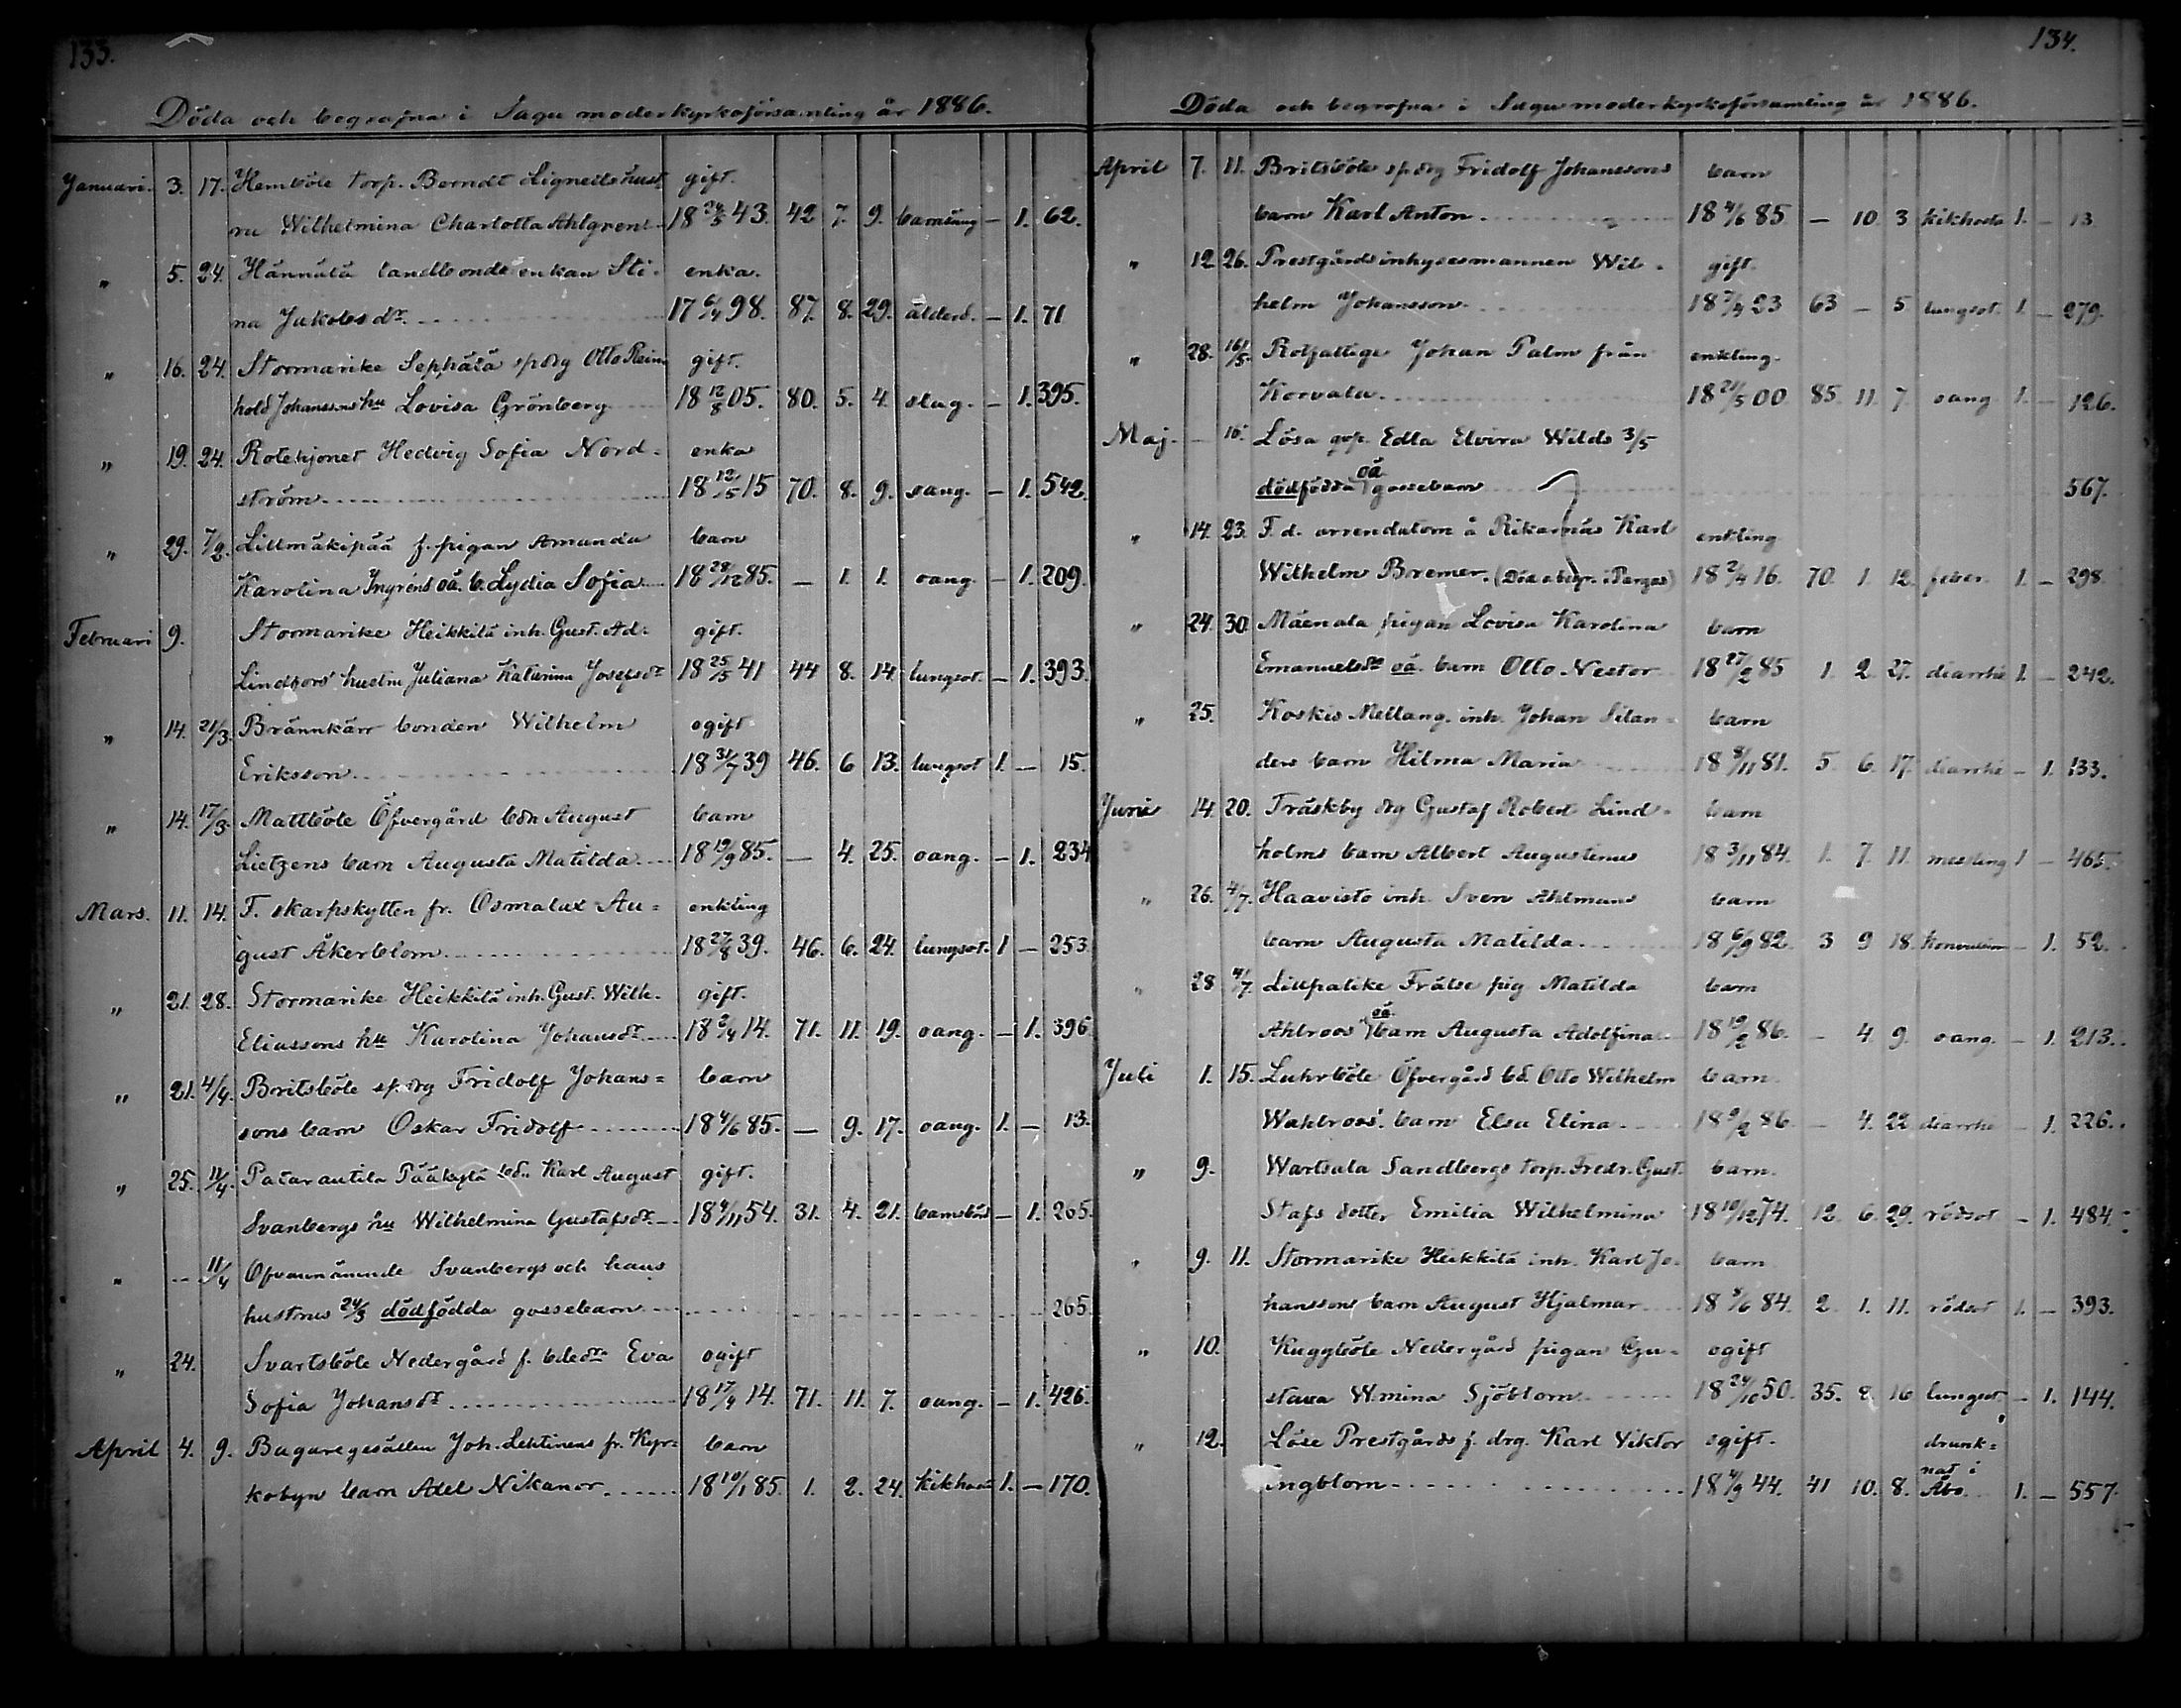 133.
Döda och begrafna i Sagu moderkyrkoförsamling år 1886.
Januari. 3. 17. Hemböle torp. Berndt Lignells hust gift.
ru Wilhelmina Charlotta Ahlgren 18 24/5 43. 42 7. 9. barnsäng — 1. 62.
" 5. 24. Hännälä landbonde enkan Sti- enka.
na Jakobsdr. 17 6/4 98. 87. 8. 29. ålderd. — 1. 71
" 16. 24. Stormarike Seppälä spdrg Otto Rein gift.
hold Johanssons hu Lovisa Grönberg 18 12/8 05. 80. 5. 4. slag. — 1. 395.
" 19. 24. Rotehjonet Hedvig Sofia Nord- enka
ström 18 12/5 15 70. 8. 9. oang. — 1. 542.
" 29. 7/2. Lillmäkipää f. pigan Amanda barn
Karolina Yngréns oä. b. Lydia Sofia 18 28/12 85. — 1. 1. oang. — 1. 209.
Februari 9. Stormarike Heikkilä inh. Gust. Ad. gift.
Lindfors' hustru Juliana Katarina Josefsdr 18 25/5 41 44 8. 14. lungsot. — 1. 393.
" 14. 21/3. Brännkärr bonden Wilhelm ogift
Eriksson 18 31/7 39 46. 6 13. lungsot 1. — 15.
" 14. 17/3. Mattböle Öfvergård bdn August barn
Lietzens barn Augusta Matilda 18 19/9 85. — 4. 25. oang. — 1. 234
Mars. 11. 14. F. skarpskytten fr. Osmalax Au= enkling
gust Åkerblom 18 27/8 39. 46. 6. 24. lungsot. 1 — 253
" 21. 28. Stormarike Heikkilä inh. Gust. Wilh. gift.
Eliassons hu Karolina Johansdr 18 2/4 14. 71. 11. 19. oang. — 1. 396
" 21. 4/4. Britsböle sp. drg Fridolf Johans= barn
sons barn Oskar Fridolf 18 4/6 85. — 9. 17. oang. 1. — 13.
" 25. 11/4. Paavantila Pääkylä bdn Karl August gift.
Svanbergs hu Wilhelmina Gustafsdr 18 4/11 54. 31. 4. 21. barnsbörd — 1. 265.
" -- 11/4 Ofvannämnde Svanbergs och hans
hustrus 24/3 dödfödda gossebarn 265.
" 24. Svartsböle Nedergård f. bdedr Eva ogift
Sofia Johansdr 18 17/4 14. 71. 11. 7. oang. — 1. 426.
April 4. 9. Bagaregesällen Joh. Lehtinens fr. Kyr= barn
kobyn barn Axel Nikanor 18 10/1 85. 1. 2. 24. Kikhosta 1. — 170.
134.
Döda och begrafna i Sagu moderkyrkoförsamling år 1886.
April 7. 11. Britsböle spdrg Fridolf Johanssons barn
barn Karl Anton 18 4/6 85 — 10. 3 kikhosta 1. — 13.
" 12 26. Prestgårds inhysesmannen Wil- gift.
helm Johansson 18 7/4 23 63 — 5 lungsot. 1. — 279.
" 28. 16/5. Rotfattige Johan Palm från enkling.
Korvala 18 21/5 00 85. 11. 7. oang 1. — 126.
Maj. — 16. Lösa qvp. Edla Elvira Wilds 3/5
dödfödda oä gossebarn 567.
" 14. 23. F. d. arrendatorn å Rikarnäs Karl enkling
Wilhelm Boremer. (Död o begr. i Pargas) 18 2/4 16. 70. 1. 12. feber. 1. — 298.
" 24. 30. Mäenala pigan Lovisa Karolina barn
Emanuelsdrs oä. barn Otto Nestor 18 27/2 85 1. 2. 27. diarrhé 1. — 242.
" 25. Koskis Mellang. inh. Johan Silan- barn
ders barn Hilma Maria 18 8/11 81. 5. 6. 17. diarrhé — 1. 133.
Juni 14. 20. Träskby drg Gustaf Robert Lind- barn
holms barn Albert Augustinus 18 3/11 84. 1. 7. 11. messling 1 — 465.
" 26. 4/7. Haavisto inh. Sven Ahlmans barn
barn Augusta Matilda 18 6/9 82. 3 9 18. Konvulsion — 1. 52.
" 28 4/7. Lillpalike Frälse pig Matilda barn
Ahlroos' oä barn Augusta Adolfina 18 19/2 86. — 4. 9. oang. — 1. 213.
Juli 1. 15. Luhrböle Öfvergård bd. Otto Wilhelm barn.
Wahlroos'. barn Elsa Elina 18 9/2 86. — 4. 22 diarrhe — 1. 226.
" 9. Wartsala Sandbergs torp. Fredr. Gust. barn.
Stafs dotter Emilia Wilhelmina 18 10/12 74. 12. 6. 29. rödsot — 1. 484.
" 9. 11. Stormarike Heikkilä inh. Karl Jo- barn
hanssons barn August Hjalmar 18 8/6 84. 2. 1. 11. rödsot 1. — 393.
" 10. Kuggböle Nedergård pigan Gu- ogift
stava Wmina Sjöblom 18 24/10 50. 35. 8. 16 lungsot — 1. 144.
" 12. Löse Prestgårds f. drg. Karl Viktor ogift. drunk=
nat i
Engblom 18 4/9 44. 41 10. 8. Åbo. 1. — 557.